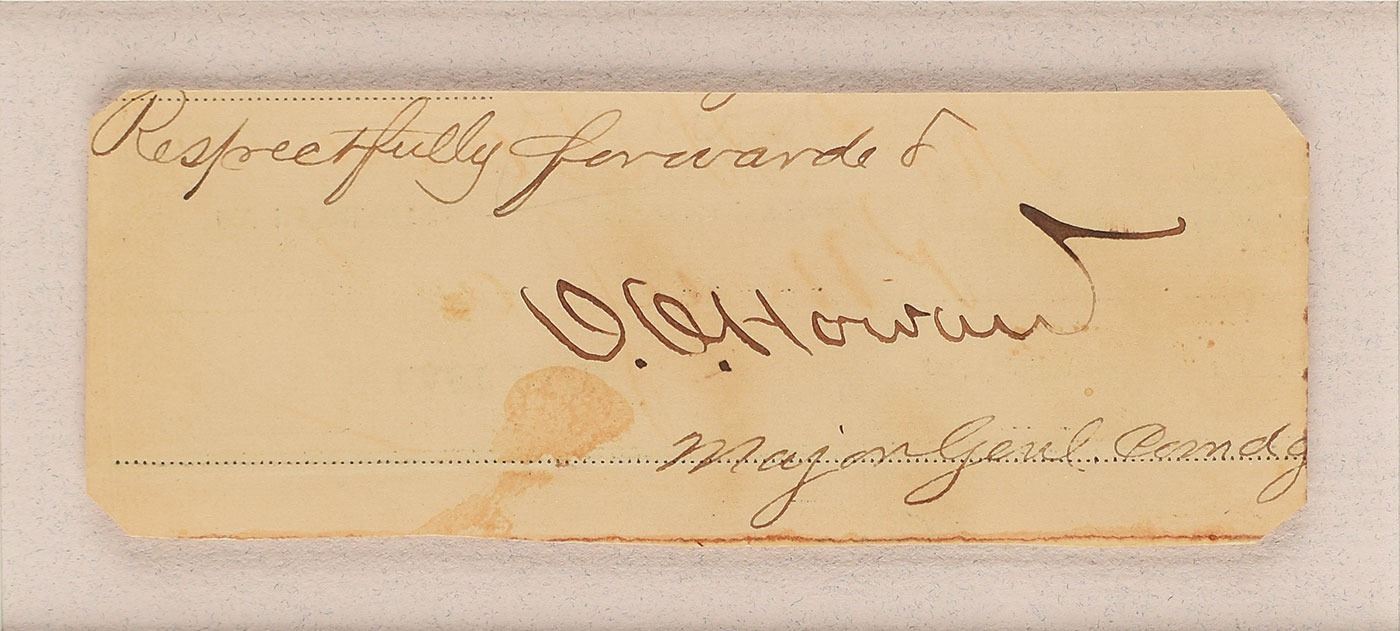 Respectfully forwarded
O.O. Howard
Major Genl. Comdg